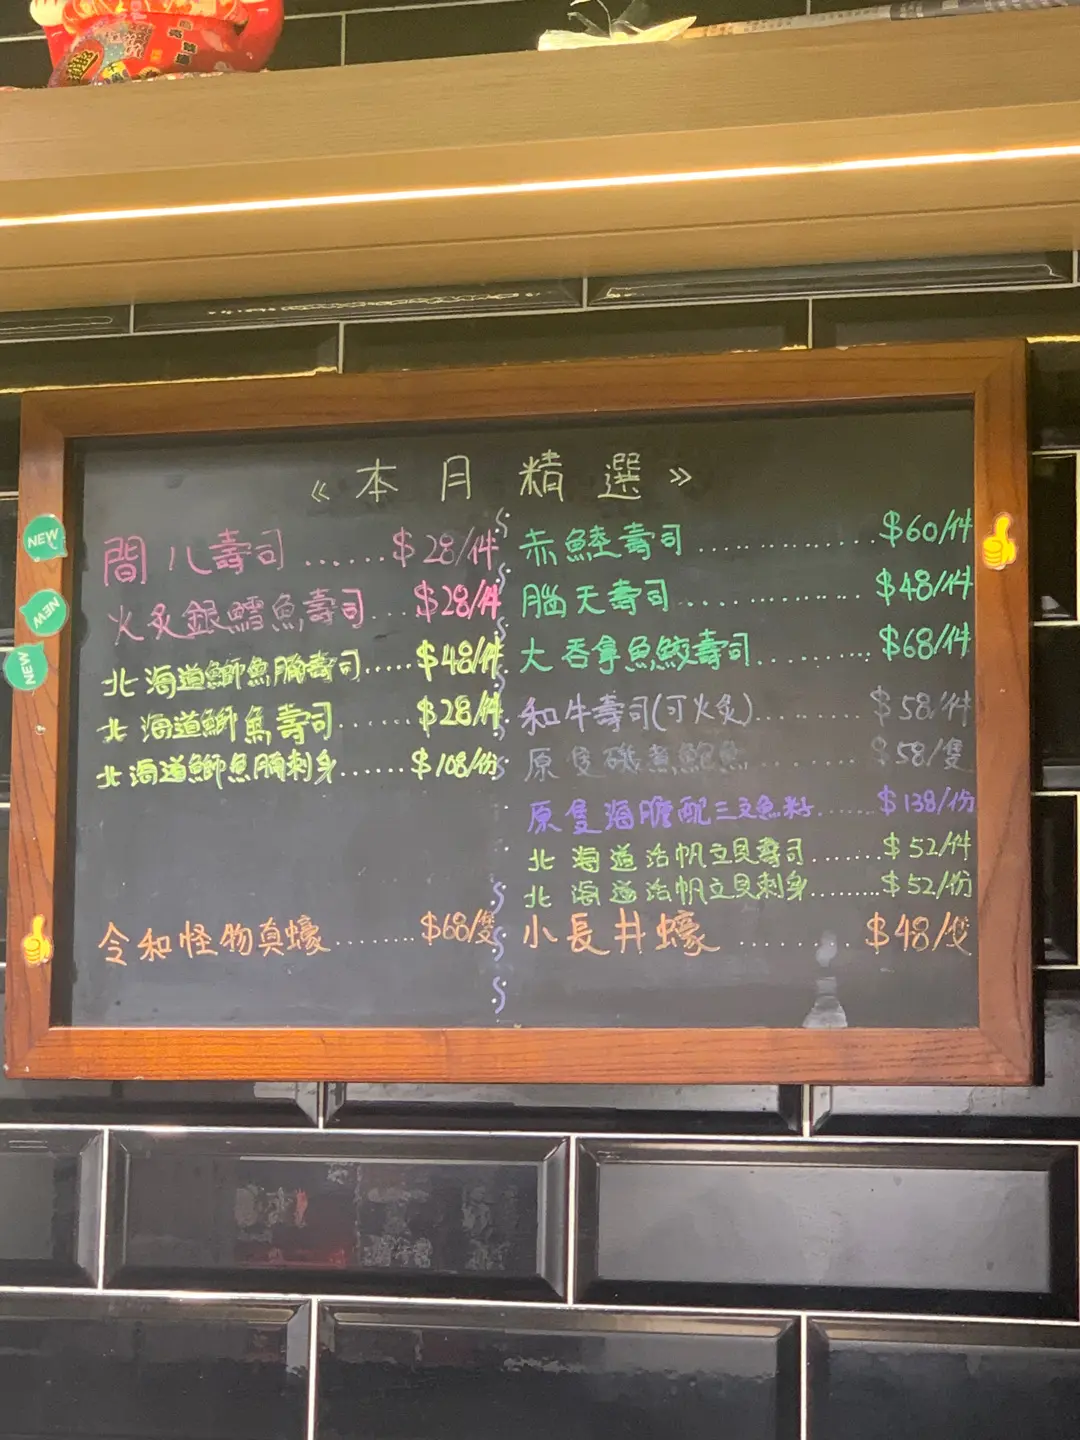 《本月精選》
NEW
間八壽司......$28/件
NEW
火炙銀鱈魚壽司...$28/件
NEW
北海道鰤魚腩壽司.....$48/件
北海道鰤魚壽司.......$28/件
北海道鰤魚腩刺身......$108/份
令和怪物真蠔........$68/隻
赤鯥壽司...............$60/件
腦天壽司...............$48/件
大吞拿魚鮫壽司..........$68/件
和牛壽司(可火炙)..........$58/件
原隻磯煮鮑魚............$58/隻
原隻海膽配三文魚籽......$138/份
北海道活帆立貝壽司.......$52/件
北海道活帆立貝刺身.........$52/份
小長井蠔..........$48/隻